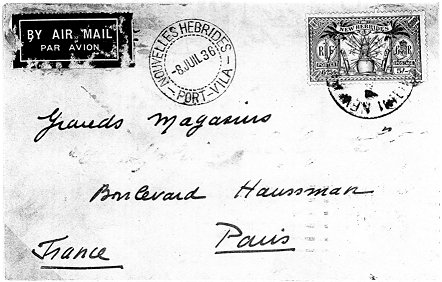 BY AIR MAIL
PAR AVION
NOUVELLES HEBRIDES
-8 JUIL 36
PORT-VILA
NEW HEBRIDES
RF
Grands Magasins
Boulevard Haussman
Paris
France